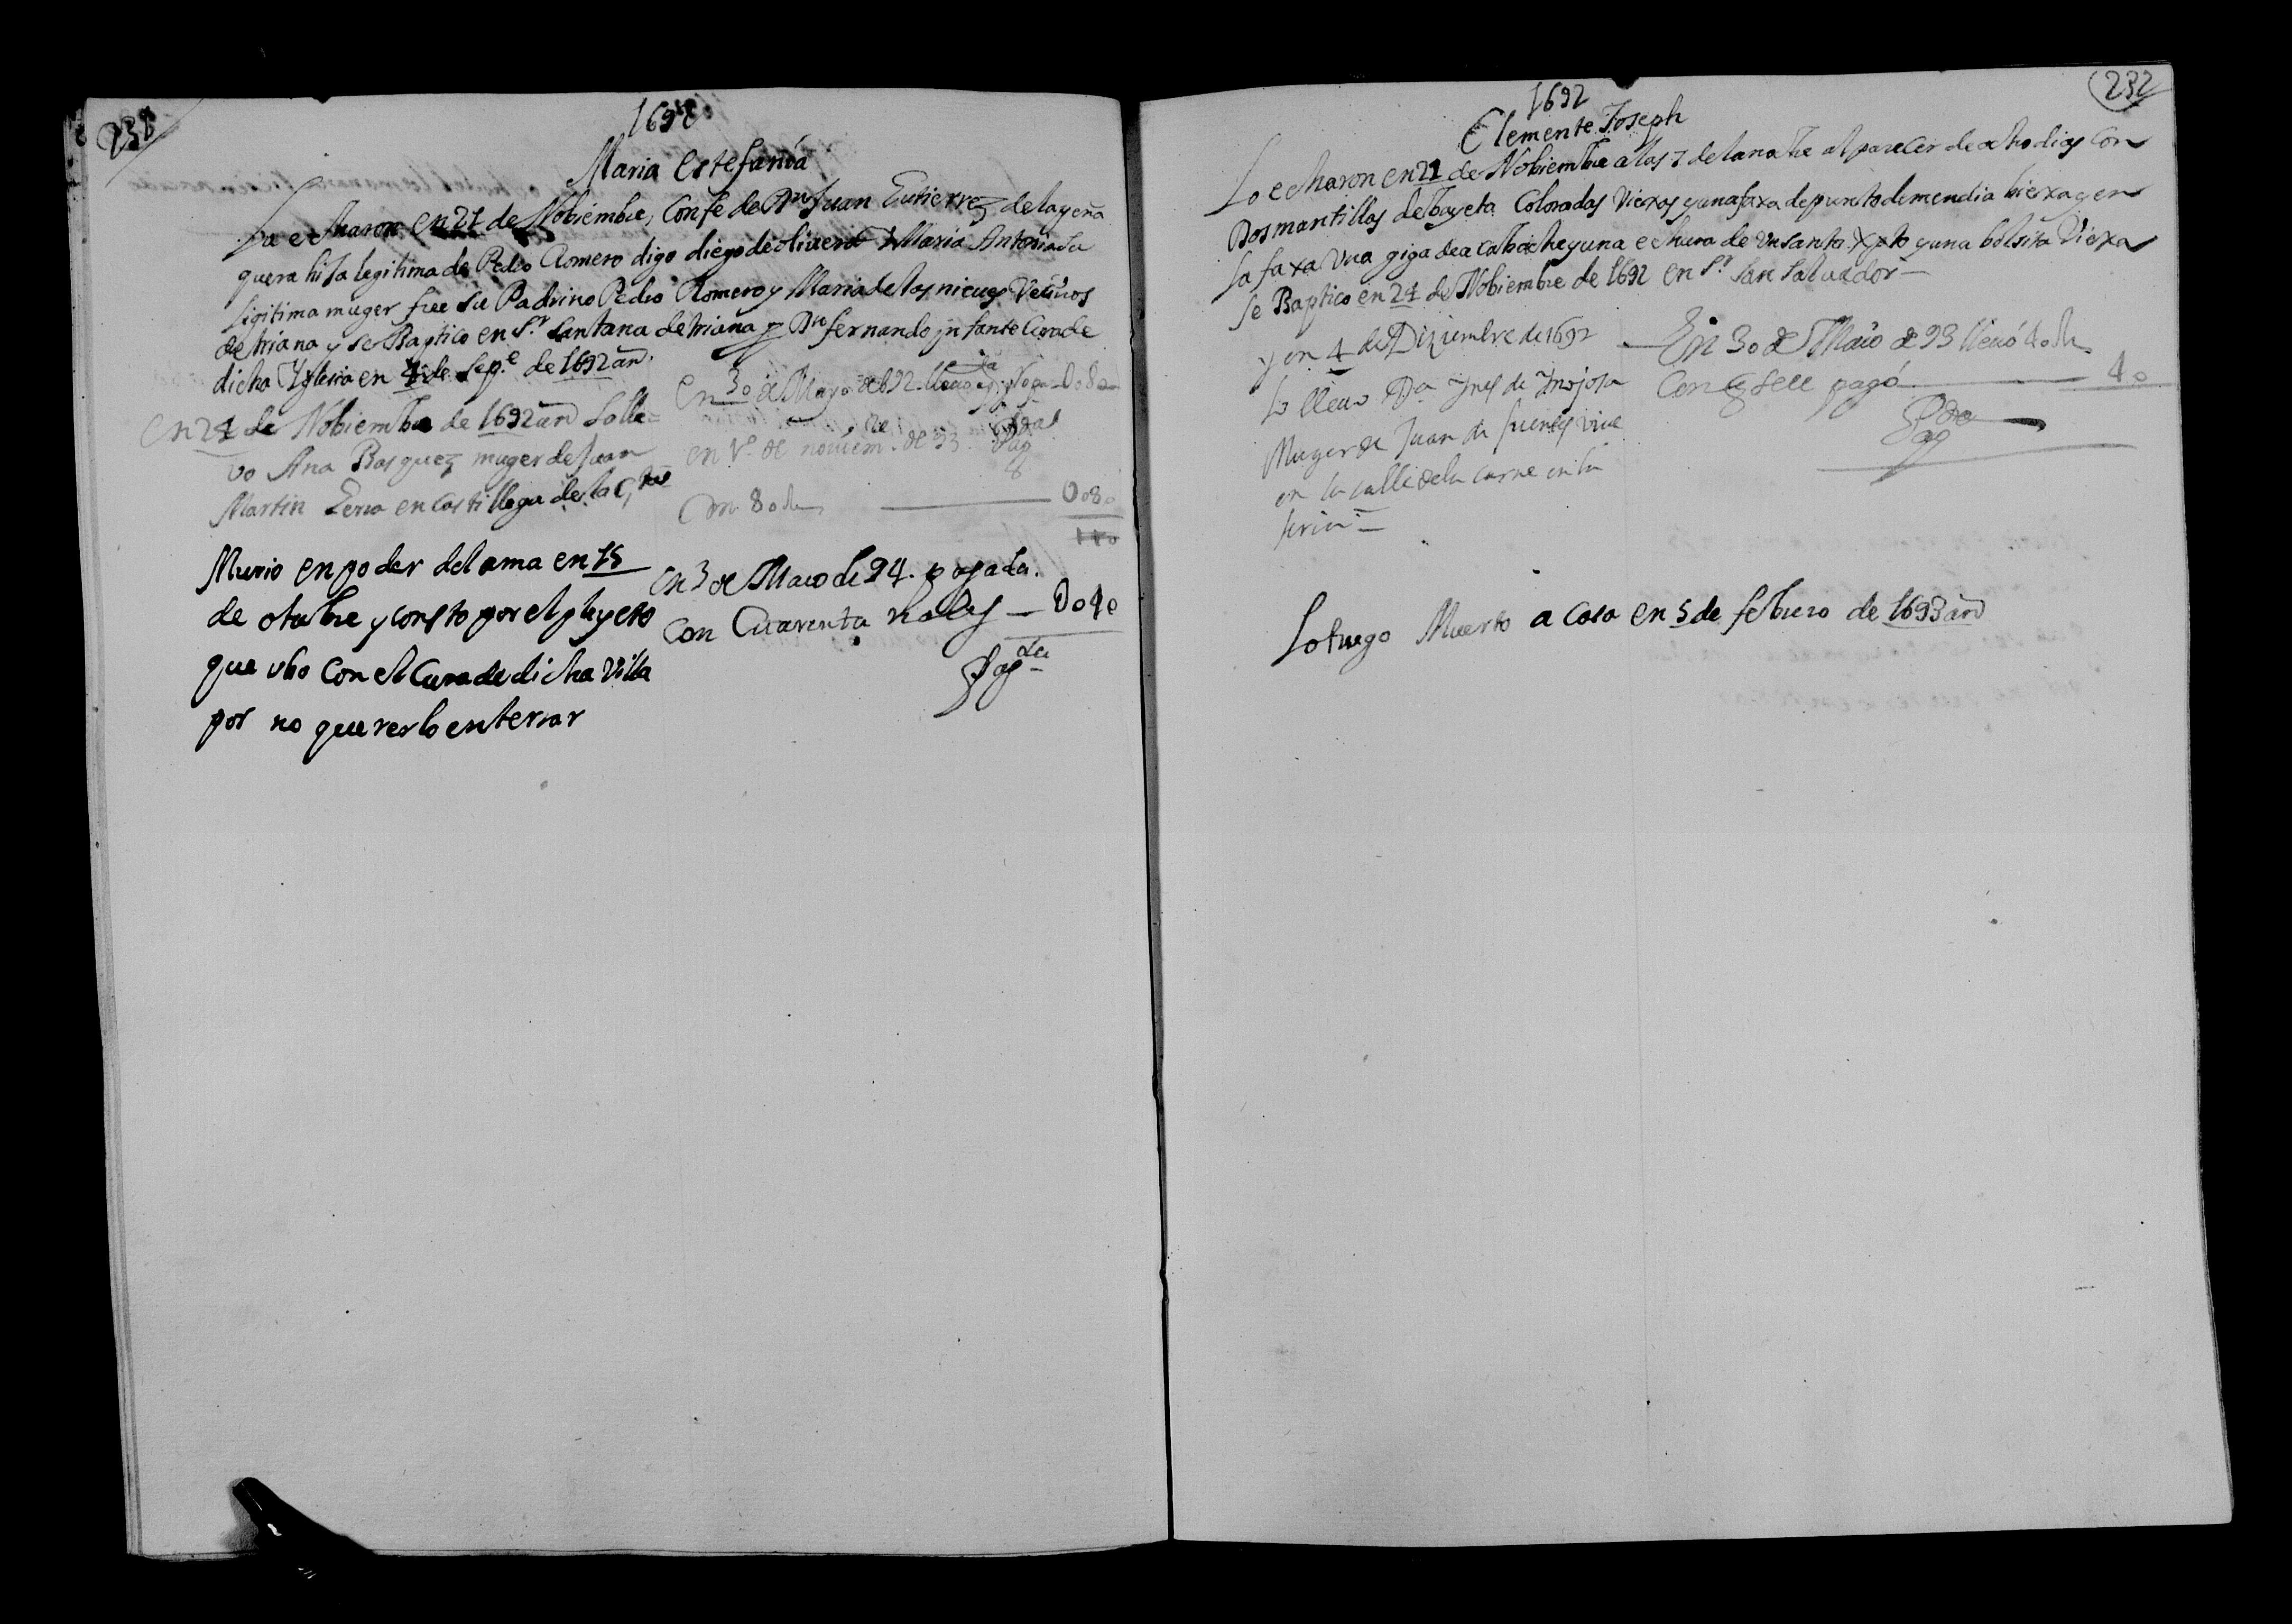 231
1692
Maria Estefania
La echaron en 21 de Nobiembre, Con fe de Dn Juan Gutierrez de la peña
quera hisa legitima de Pedro Romero digo diego de olivera y Maria Antonia su
ligitima muger fue su Padrino Pedro Romero y Maria de las nieues Vecinos
de triana y se Baptico en Sra Santana de triana por Dn fernando ynfante Cura de
dicha Yglesia en 4 de Sep.e de 1692 an.
en 24 de Nobiembre de 1692 an Lo lle=
vo Ana Basquez muger de Juan
Martin Serra en Castillega de la C,ta
Murio en poder del ama en 15
de otubre y consto por el pleyto
que vbo con el Cura de dicha Villa
por no quererlo enterrar
en 30 de Mayo de 692 lleuo 080
en 1.º de noviem.re de 93
Con 80 Rs 0080
140
en 3 de Maio de 94. pagada.
Con Cuarenta Reales — 0040
Pagda
232
1692
Clemente Joseph
Lo echaron en 21 de Nobiembre a las 7 de la noche al parecer de ocho dias Con
Dos mantillas de bayeta Coloradas Viexas y una faxa de punto de mendia biexa y en
la faxa Una giga de acabache y una echura de Un santo Xpto y una bolsita Viexa
Se Baptico en 24 de Nobiembre de 1692 en Sr San Saluador —
y en 4 de Diziembre de 1692
Lo lleuo Da Ynes de Ynojosa
Muger de Juan de fuentes viue
en la calle de la carne en la
feria —
En 30 de Maio de 93 lleuó 40 Rs
Con q se le pagó — 40
Pagda
Lo trugo Muerto a casa en 5 de febrero de 1693 an